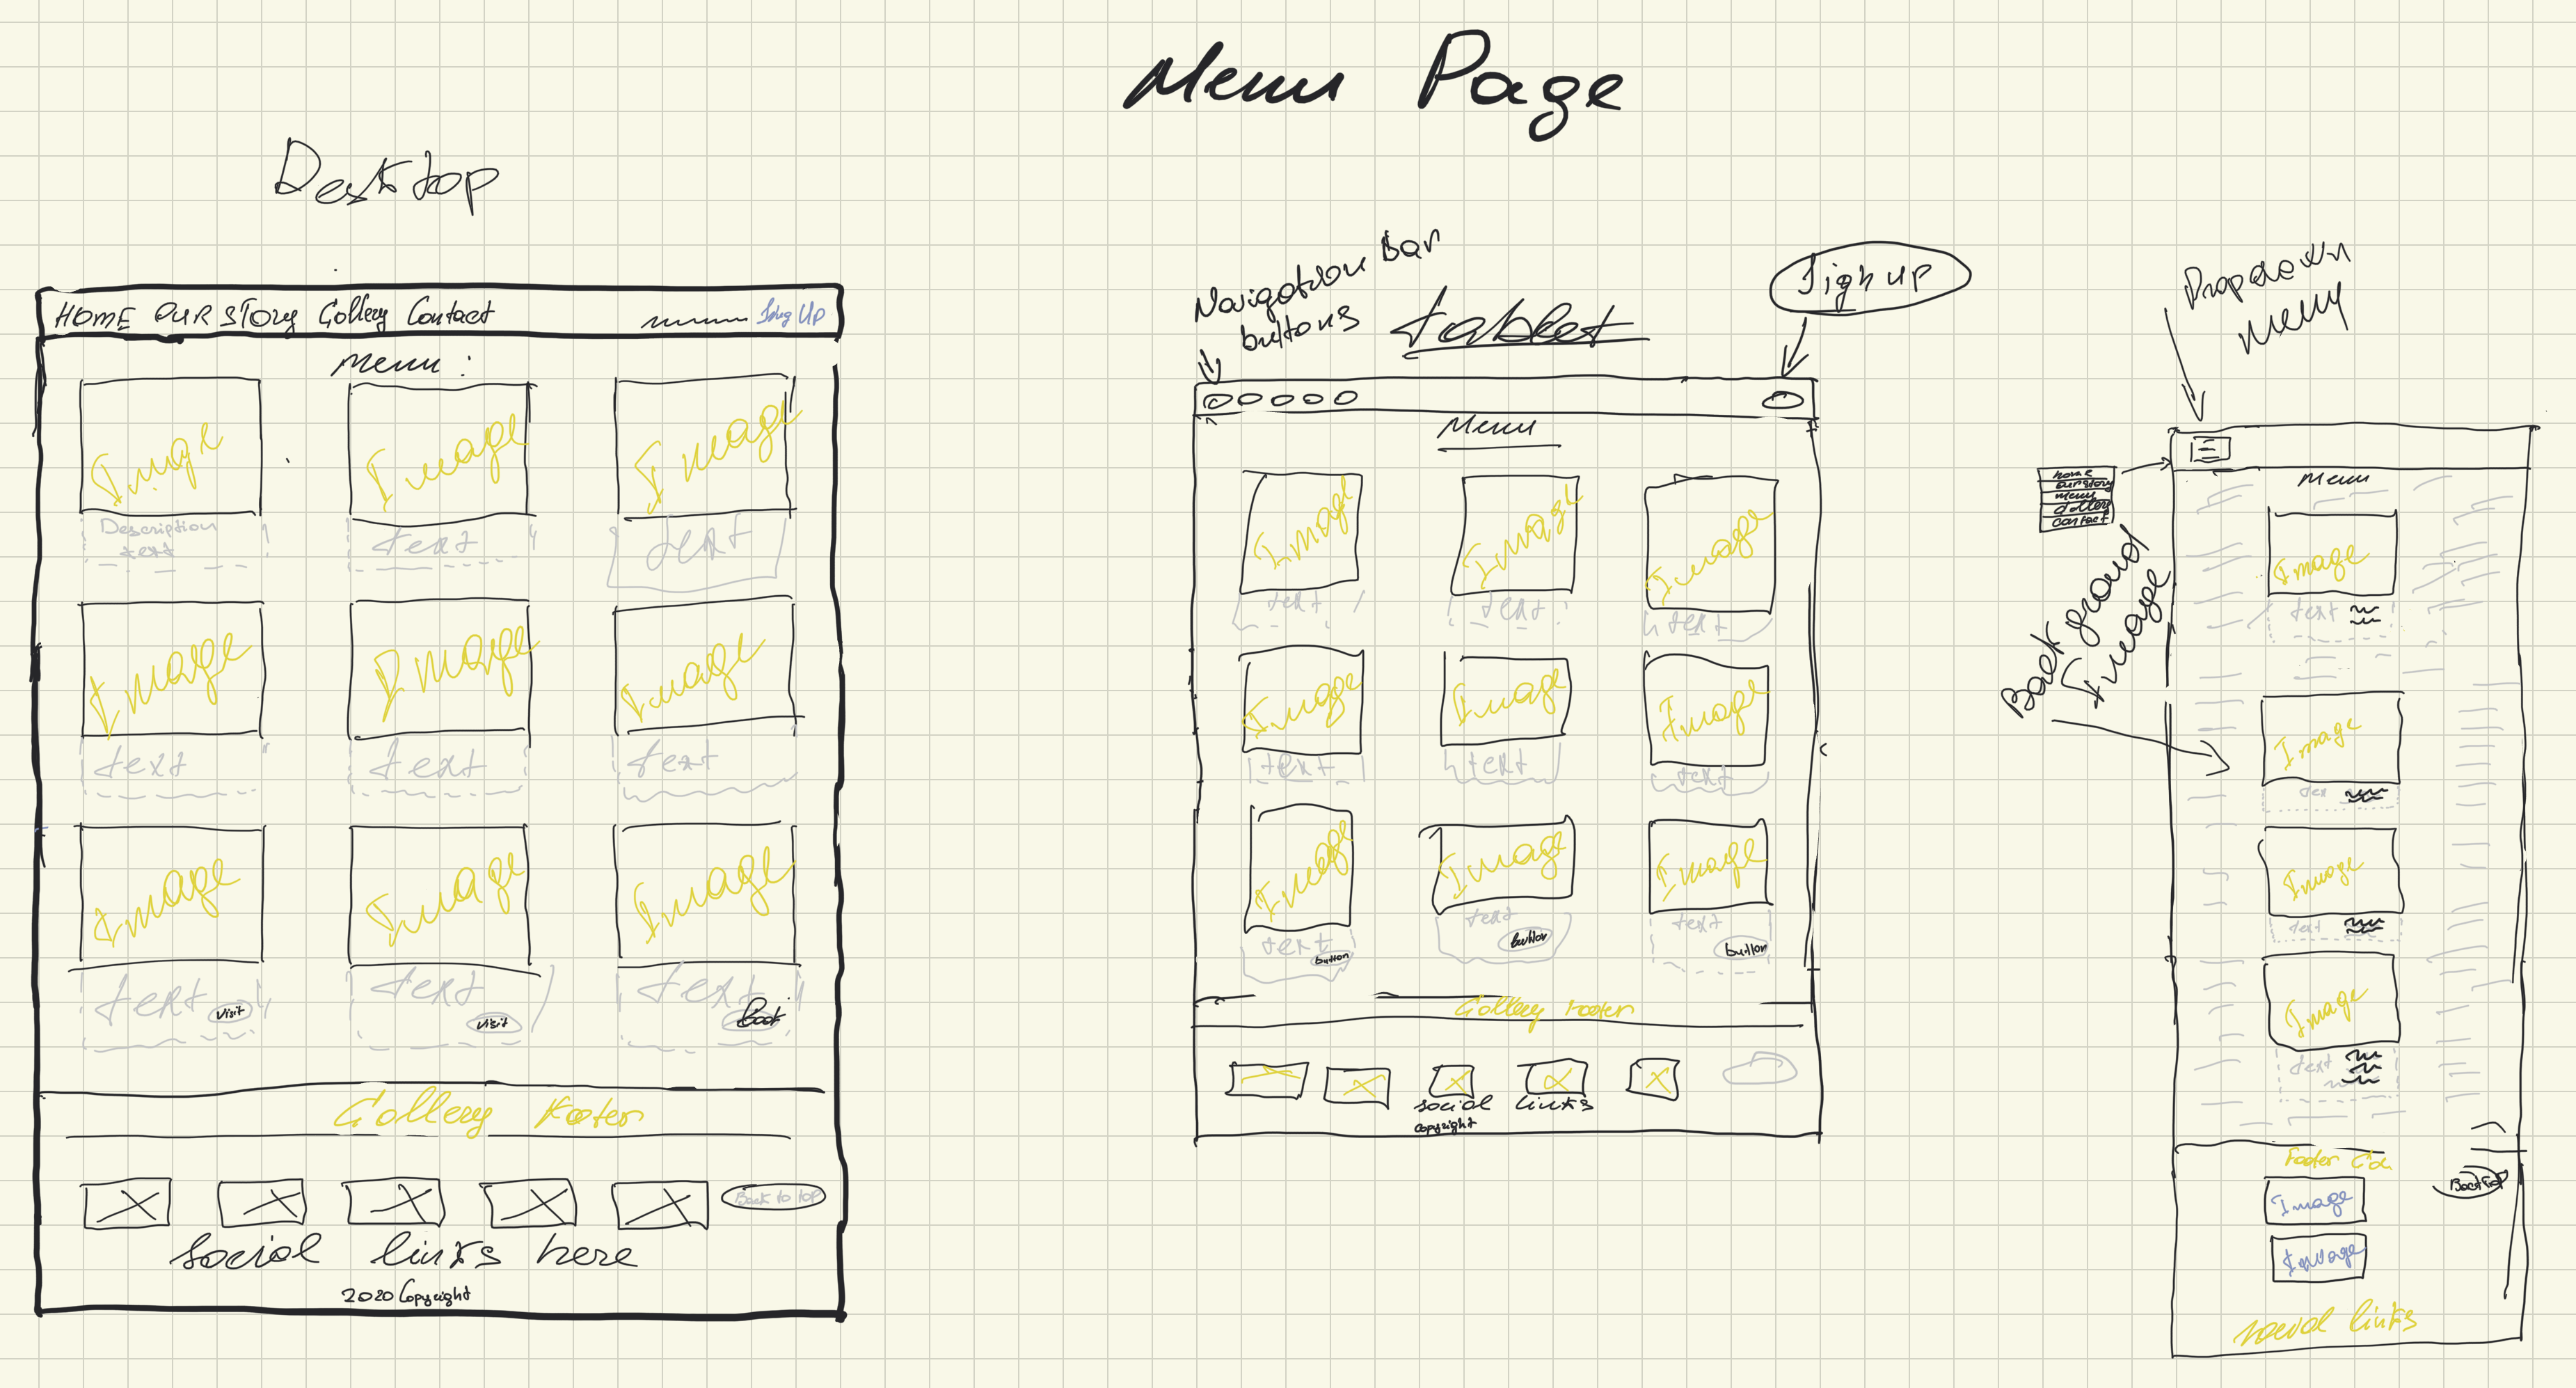 Menu Page
Desktop
HOME OUR STORY Gallery Contact
Sing Up
Menu :
Image Image Image
Description
text
text text
Image Image Image
text text text
Image Image Image
text visit text visit text
Gallery Footer
Back to top
social links here
2020 Copyright
Navigation Bar
buttons
tablet
Sign up
Menu
Image Image Image
text text text
Image Image Image
text text text
Image Image Image
text button text button text button
Gallery Footer
social links
Copyright
Dropdown
menu
home
our story
menu
Gallery
contact
Background
Image
Menu
Image
text
Image
tex
Image
text
Image
text
Footer
Image
Image
social links